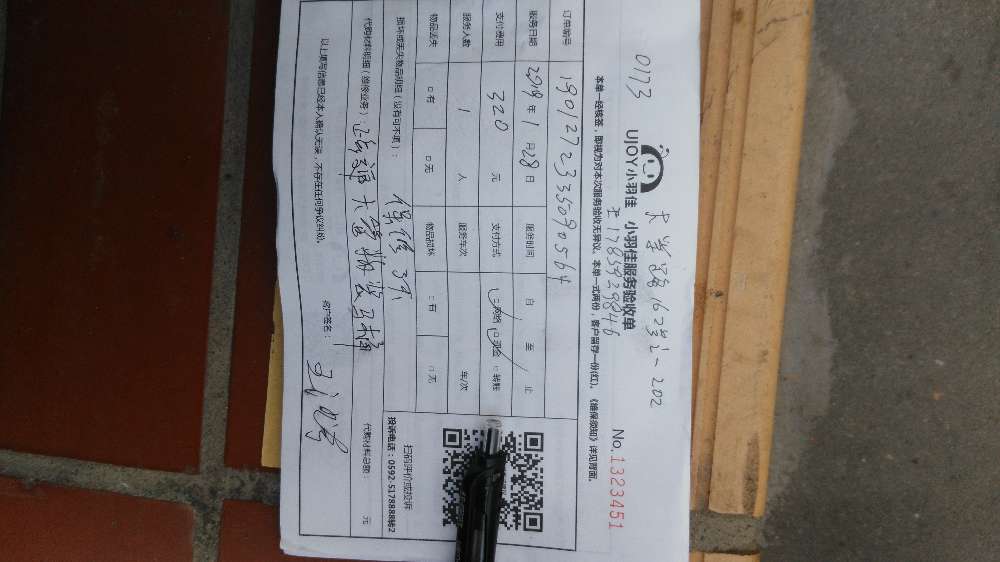 0113
大学路162号之一202
UJOY小羽佳 小羽佳服务验收单
No.1323451
17859229846
本单一经核签，即视为对本次服务验收无异议。本单一式两份，客户留存一份(红)。《维保须知》详见背面。
订单编号 1901272335090564
服务日期 2019年1月28日 服务时间 自 至 止
支付费用 320 元 支付方式 □网络 □现金 □转账
服务人数 1 人 服务车次 车/次
物品丢失 □有 □无 物品损坏 □有 □无
损坏或丢失物品明细（没有可不填）：
保修3个
代购材料明细（维修业务）
代购材料总额： 元
以上填写信息已经本人确认无误，不存在任何争议纠纷。
客户签名：
扫码评价或投诉
投诉电话：0592-5178888转2